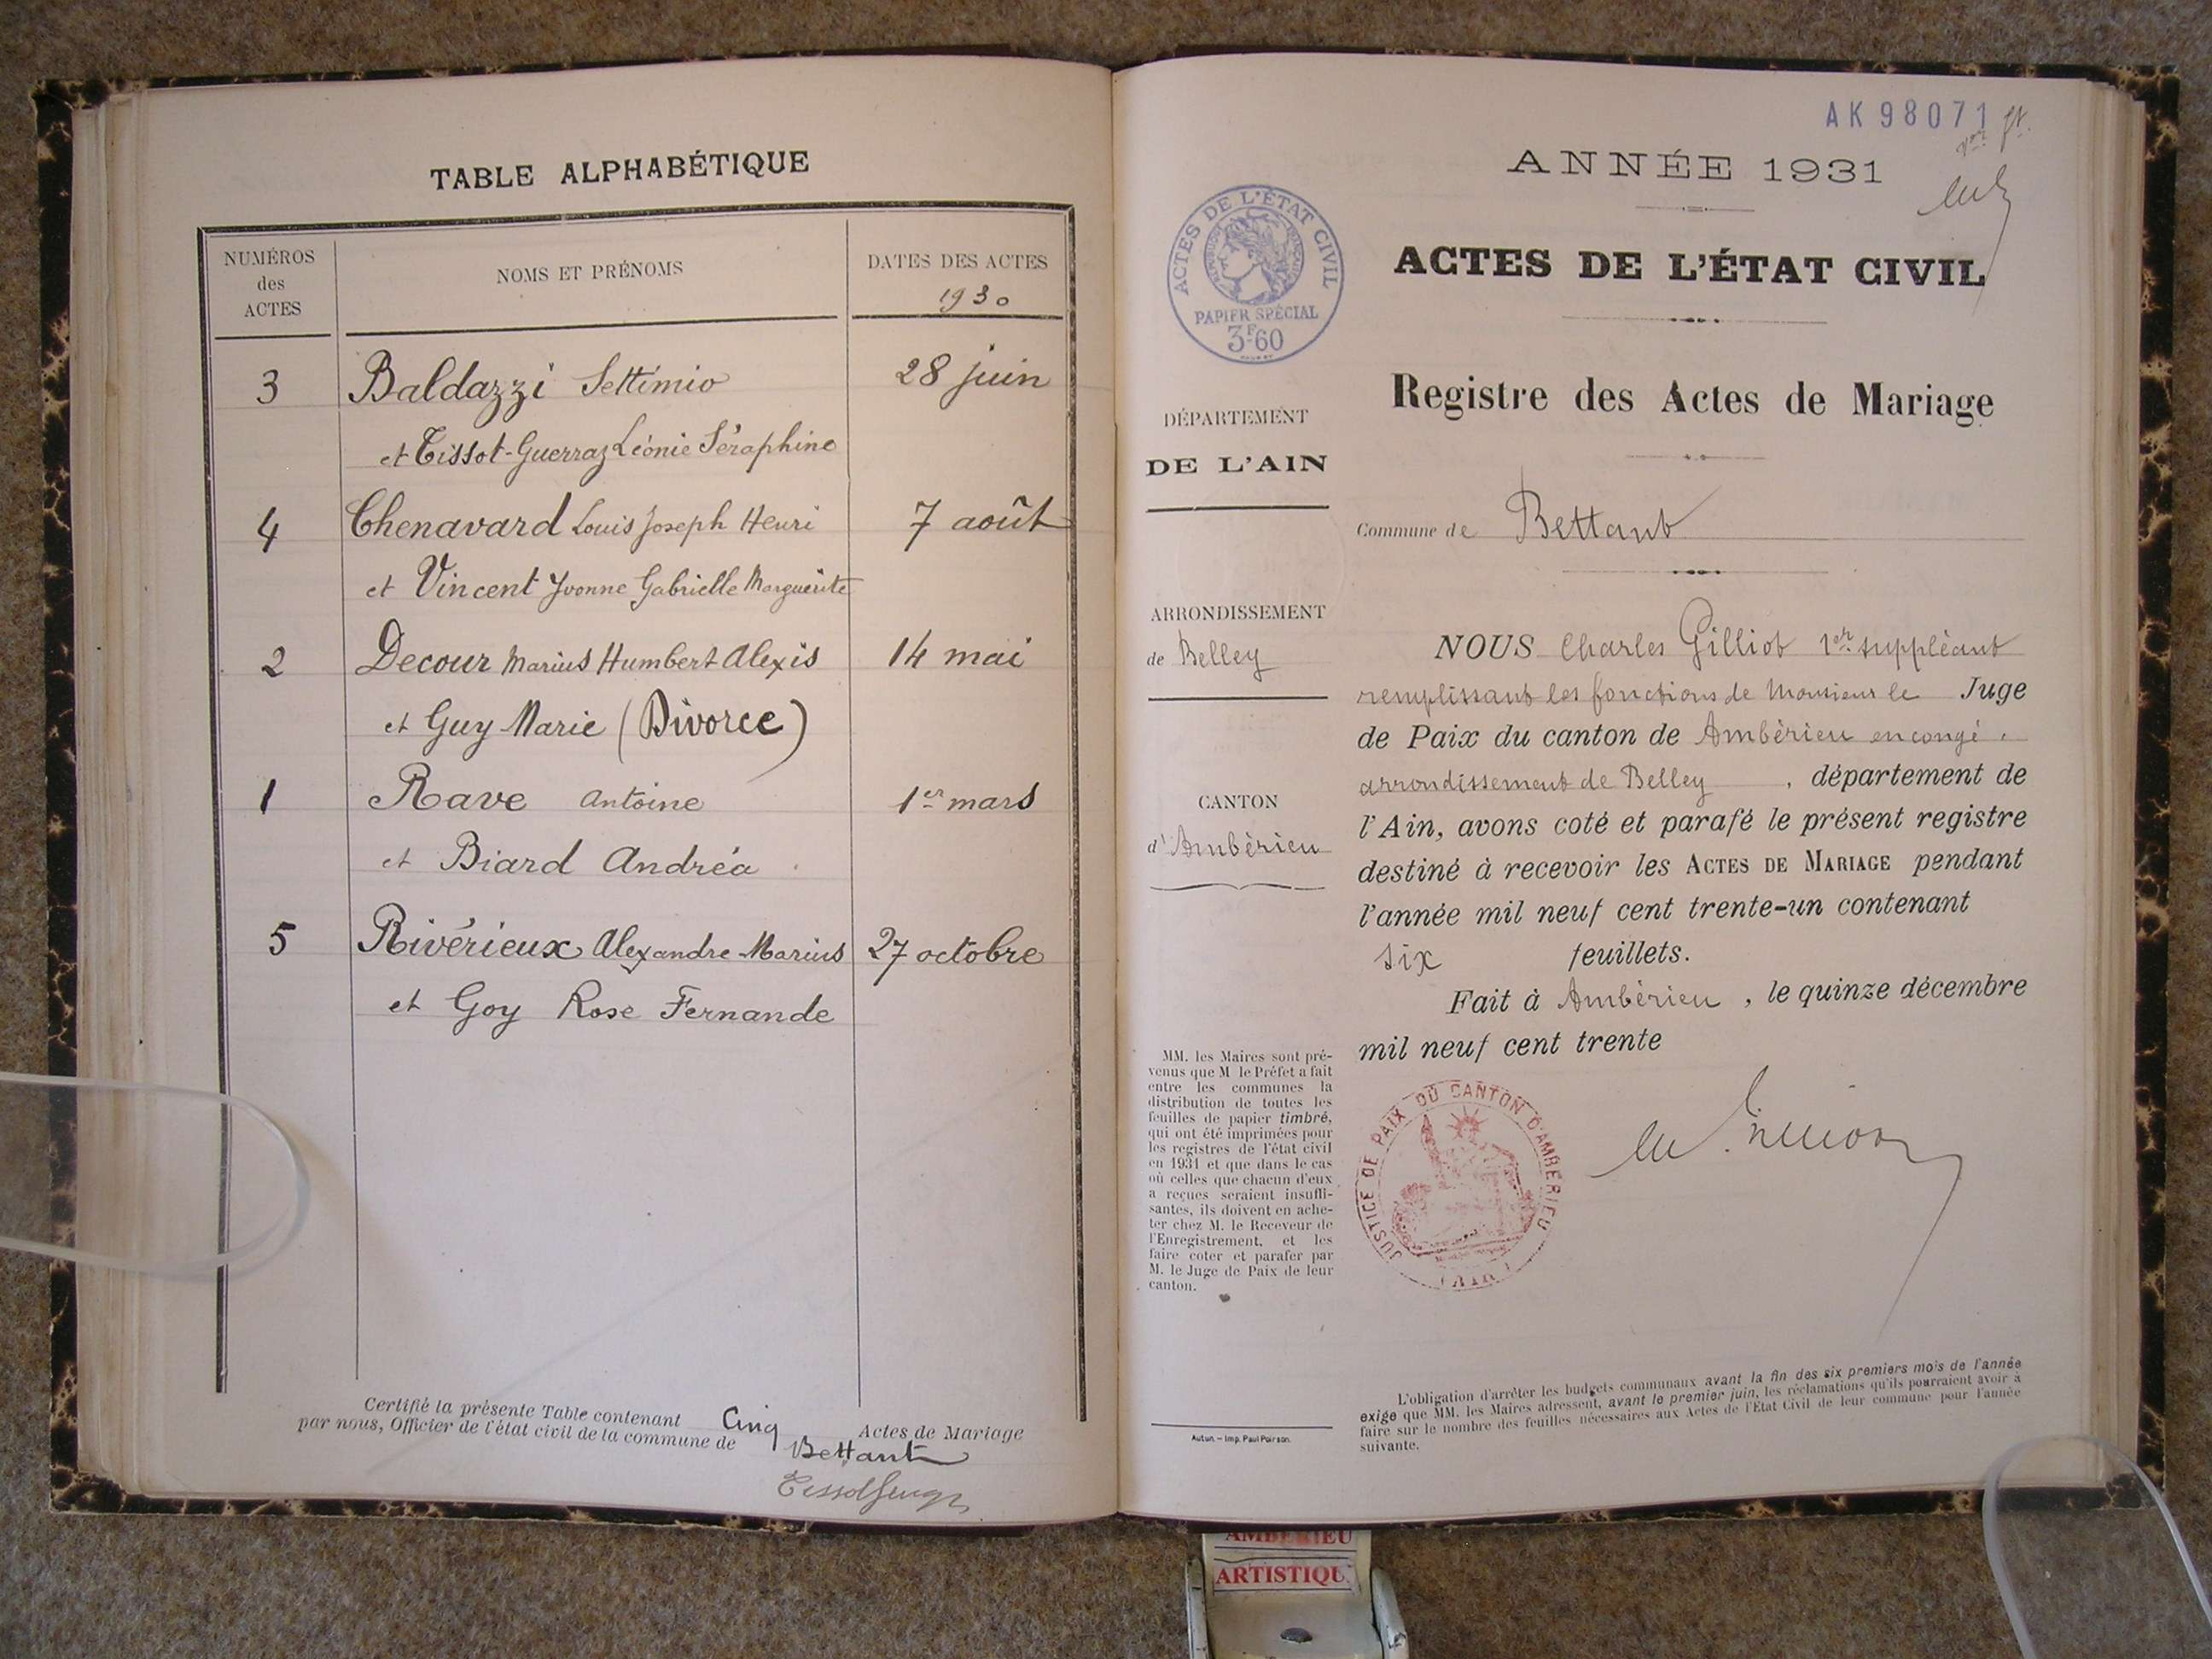 TABLE ALPHABÉTIQUE
NUMÉROS des ACTES
NOMS ET PRÉNOMS
DATES DES ACTES
1930
3 Baldazzi Settimio 28 juin
et Tissot-Guerraz Léonie Séraphine
4 Chenavard Louis Joseph Henri 7 août
et Vincent Yvonne Gabrielle Marguerite
2 Decour Marius Humbert Alexis 14 mai
et Guy Marie (Divorce)
1 Rave Antoine 1er mars
et Biard Andréa
5 Rivérieux Alexandre Marius 27 octobre
et Goy Rose Fernande
Certifié la présente Table contenant Cinq Actes de Mariage
par nous, Officier de l'état civil de la commune de Bettant
AK 98071
ANNÉE 1931
ACTES DE L'ÉTAT CIVIL
PAPIER SPÉCIAL
3F60
ACTES DE L'ÉTAT CIVIL
Registre des Actes de Mariage
DÉPARTEMENT
DE L'AIN
Commune de Bettant
ARRONDISSEMENT
de Belley
CANTON
d'Ambérieu
NOUS Charles Gilliot 1er suppléant
remplissant les fonctions de Monsieur le Juge
de Paix du canton de Ambérieu en congé,
arrondissement de Belley, département de
l'Ain, avons coté et parafé le présent registre
destiné à recevoir les ACTES DE MARIAGE pendant
l'année mil neuf cent trente-un contenant
six feuillets.
Fait à Ambérieu, le quinze décembre
mil neuf cent trente
MM. les Maires sont pré-
venus que M le Préfet a fait
entre les communes la
distribution de toutes les
feuilles de papier timbré,
qui ont été imprimées pour
les registres de l'état civil
en 1931 et que dans le cas
où celles que chacun d'eux
a reçues seraient insuffi-
santes, ils doivent en ache-
ter chez M. le Receveur de
l'Enregistrement, et les
faire coter et parafer par
M. le Juge de Paix de leur
canton.
JUSTICE DE PAIX DU CANTON D'AMBERIEU
(AIN)
L'obligation d'arrêter les budgets communaux avant la fin des six premiers mois de l'année
exige que MM. les Maires adressent, avant le premier juin, les réclamations qu'ils pourraient avoir à
faire sur le nombre des feuilles nécessaires aux Actes de l'Etat Civil de leur commune pour l'année
suivante.
Autun. – Imp. Paul Poirson.
AMBERIEU
ARTISTIQU